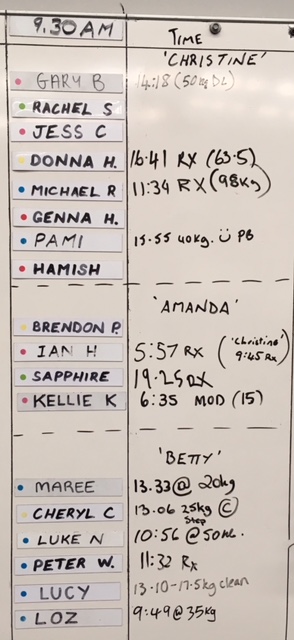 9.30AM TIME
'CHRISTINE'
GARY B 14:18 (50kg DL)
RACHEL S
JESS C
DONNA H. 16.41 RX (63.5)
MICHAEL R 11:34 RX (98Kg)
GENNA H.
PAMI 15.55 40kg. Ü PB
HAMISH
'AMANDA'
BRENDON P.
IAN H 5:57 RX ('Christine' 9:45 Rx)
SAPPHIRE 19.25 RX
KELLIE K 6:35 MOD (15)
'BETTY'
MAREE 13.33 @ 20kg
CHERYL C 13.06 25kg Step ©
LUKE N 10:56 @ 50KG.
PETER W. 11:32 Rx
LUCY 13.10-17.5kg clean
LOZ 9:49 @ 35kg